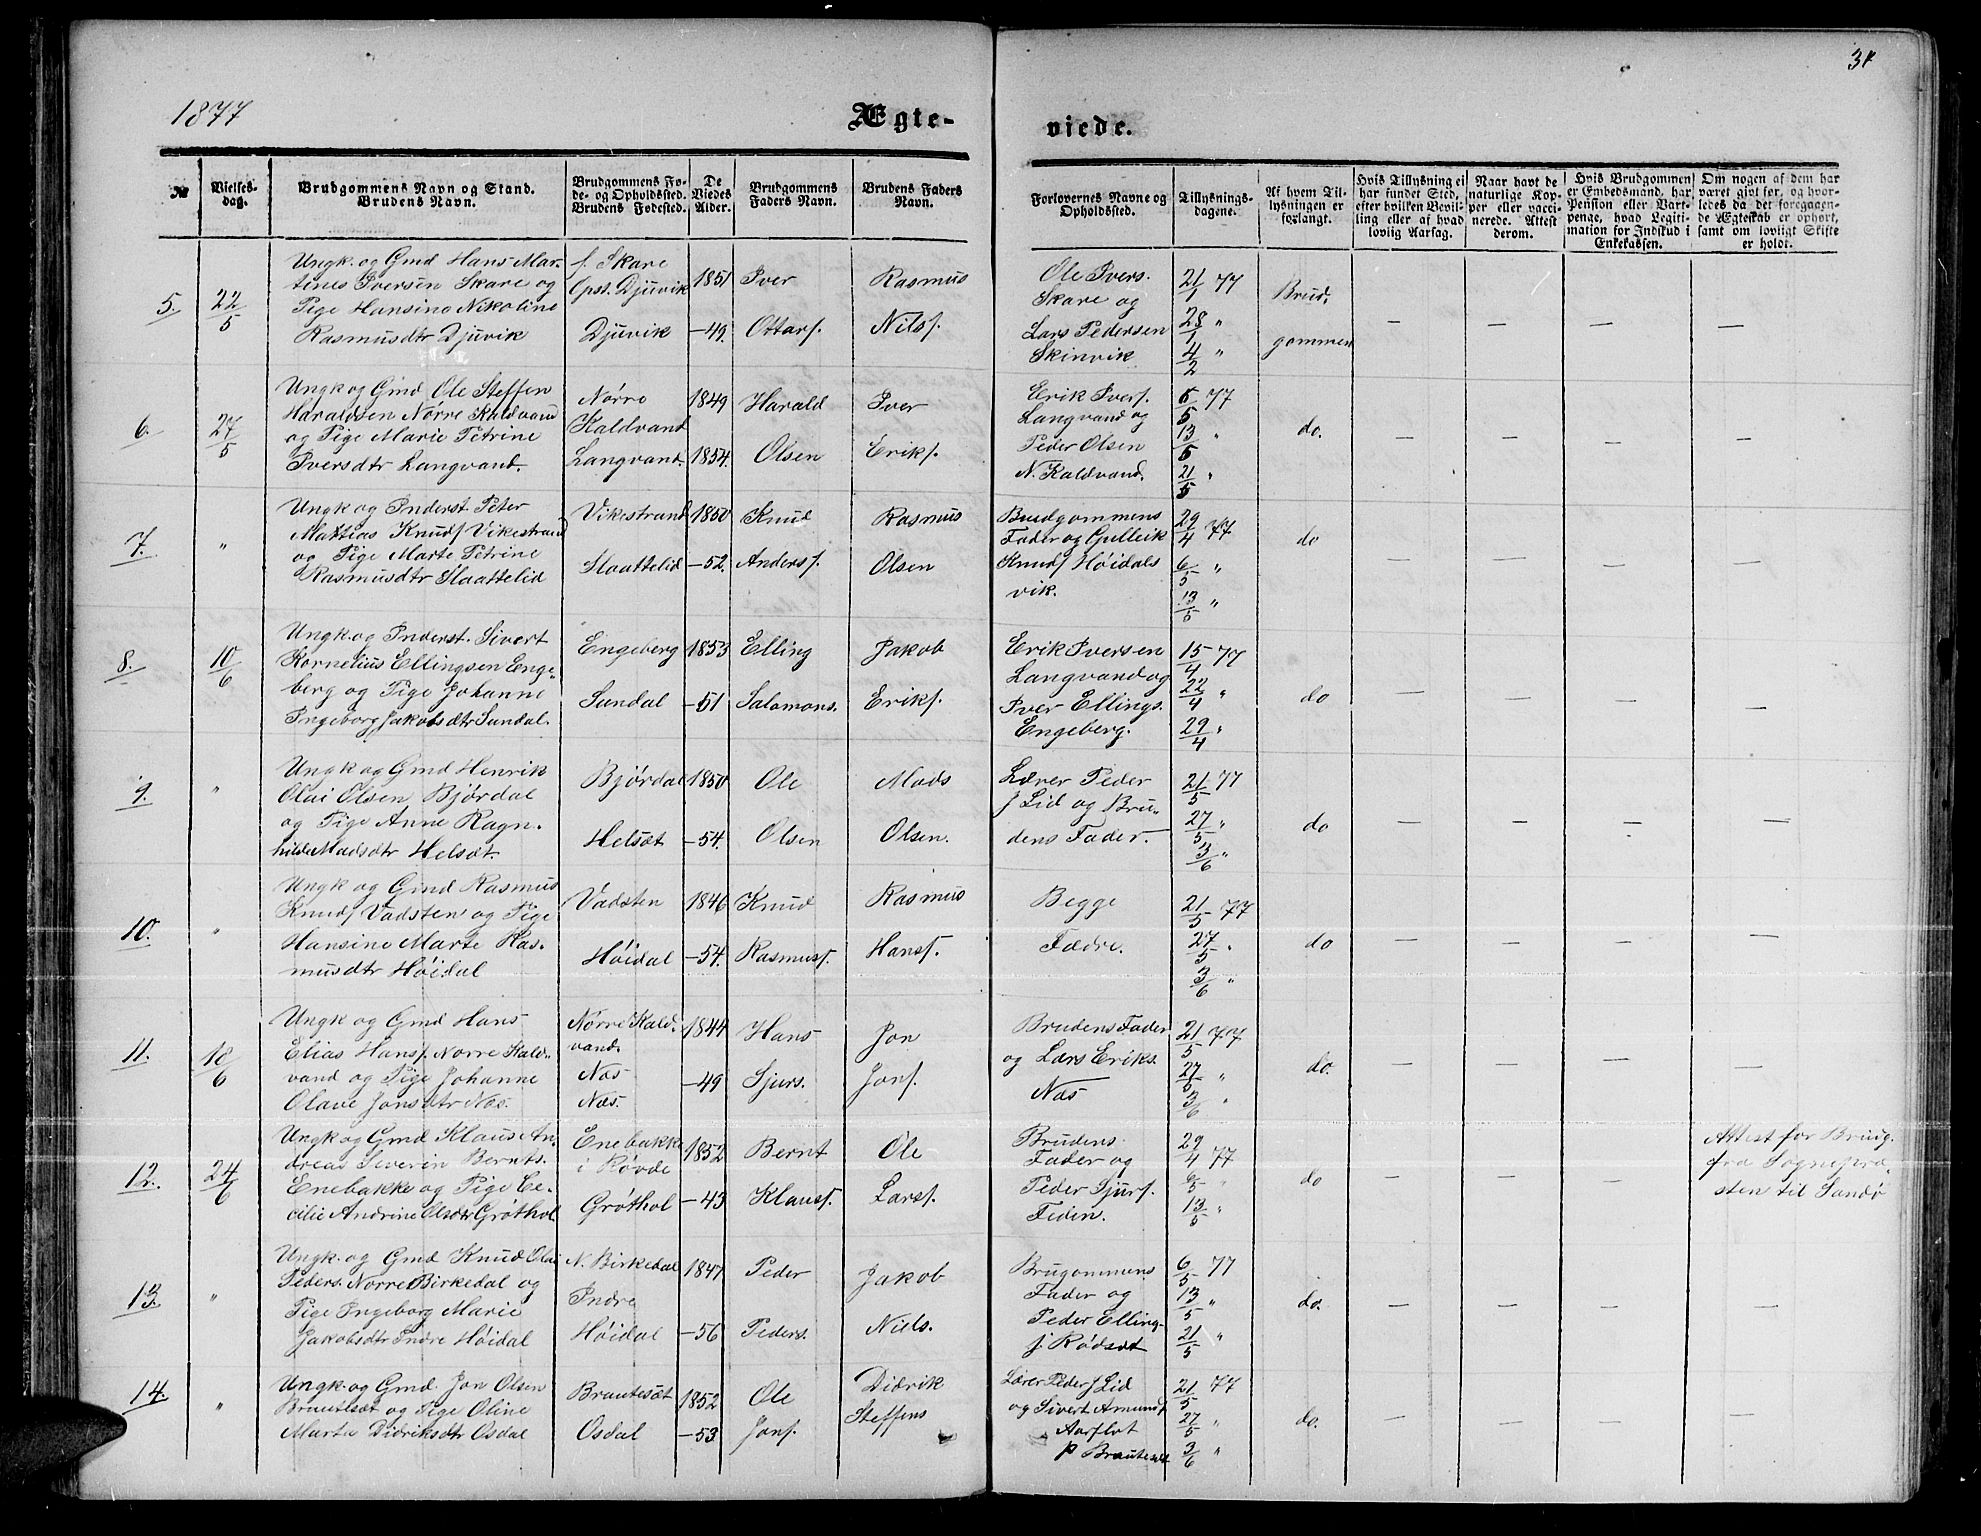 1877
Ægte-
viede.
31
№
Vielses-
dag.
Brudgommens Navn og Stand.
Brudens Navn.
Brudgommens Fø-
de- og Opholdssted.
Brudens Fødested.
De
Viedes
Alder.
Brudgommens
Faders Navn.
Brudens Faders
Navn.
Forlovernes Navne og
Opholdssted.
Tillysnings-
dagene.
Af hvem Til-
lysningen er
forlangt.
Hvis Tillysning ei
har fundet Sted,
efter hvilken Bevil-
ling eller af hvad
lovlig Aarsag.
Naar havt de
naturlige Kop-
per eller vacci-
nerede. Attest
derom.
Hvis Brudgommen
er Embedsmand, har
Pension eller Vart-
penge, hvad Legiti-
mation for Indskud i
Enkekassen.
Om nogen af dem har
været gift før, og hvor-
ledes da det foregaaen-
de Ægteskab er ophørt,
samt om lovligt Skifte
er holdt.
5.
22/5
Ungk. og Gmd Hans Mar-
tines Iversen Skare og
Pige Hansine Nikoline
Rasmusdtr Djuvik
f. Skare
Opst. Djuvik
Djuvik
1851
-49.
Iver
Ottarf.
Rasmus
Nilsf.
Ole Ivers.
Skare og
Lars Pedersen
Skinvik
21/1 77
28/1 "
4/2 "
Brud-
gommen
— — — —
6.
27/5
Ungk og Gmd Ole Steffen
Haraldsen Nørre Kaldvand
og Pige Marie Petrine
Iversdtr Langvand.
Nørre
Kaldvand
Langvand.
1849
1854.
Harald
Olsen
Iver
Erikf.
Erik Iverf.
Langvand og
Peder Olsen
N. Kaldvand.
6/5 77
13/5 "
21/5 "
do.
— — — —
7.
"
Ungk og Inderst Peter
Mattias Knudf Vikestrand
og Pige Marte Petrine
Rasmusdtr Slaattelid
Vikestrand
Slaattelid
1850
-52.
Knud
Andersf.
Rasmus
Olsen
Brudgommens
Fader og Gulleik
Knudf Høidals
vik.
29/4 77
6/5 "
13/5 "
do
— — — —
8.
10/6
Ungk. og Inderst. Sivert
Kornelius Ellingsen Enge-
berg og Pige Johanne
Ingeborg Jakobsdtr Sundal.
Engeberg
Sundal
1853
-51
Elling
Salamons.
Jakob
Erikf.
Erik Iversen
Langvand og
Iver Ellings.
Engeberg.
15/4 77
22/4 "
29/4 "
do
— — — —
9.
"
Ungk og Gmd Henrik
Olai Olsen Bjørdal
og Pige Anne Ragn-
hilde Madsdtr Helsæt.
Bjørdal
Helsæt
1850
-54.
Ole
Olsen
Mads
Olsen.
Lærer Peder
J Lid og Bru-
dens Fader.
21/5 77
27/5 "
3/6 "
do
— — — —
10.
"
Ungk og Gmd Rasmus
Knudf Vadsten og Pige
Hansine Marte Ras-
musdtr Høidal
Vadsten
Høidal
1846
-54.
Knud
Rasmusf.
Rasmus
Hansf.
Begge
Fædre.
21/5 77
27/5 "
3/6 "
do
— — — —
11.
18/6
Ungk og Gmd Hans
Elias Hansf. Nørre Kald-
vand og Pige Johanne
Olave Jonsdtr Næs.
Nørre Kald-
vand.
Næs
Næs.
1844
-49
Hans
Sjurs.
Jon
Jonf.
Brudens Fader
og Lars Eriks.
Næs
21/5 77
27/5 "
3/6 "
do.
— — — —
12.
24/6
Ungk og Gmd Klaus An-
dreas Severin Bernts.
Enebakke og Pige Ce-
cilie Andrine Olsdtr Grøthol
Enebakke
i Røvde
Grøthol
1852
-43
Bernt
Klausf.
Ole
Larsf.
Brudens
Fader og
Peder Sjurf.
Feden.
29/4 77
6/5 "
13/5 "
do
— — —
Attest for Brudg.
fra Sognepræ-
sten til Sandø
13.
"
Ungk. og Gmd Knud Olai
Peders. Nørre Birkedal og
Pige Ingeborg Marie
Jakobsdtr Indre Høidal
N. Birkedal
Indre
Høidal
1847
-56
Peder
Peders.
Jakob
Niels.
Brugommens
Fader og
Peder Elling-
f. Rødsæt
6/5 77
13/5 "
21/5 "
do.
— — — —
14.
"
Ungk. og Gmd. Jon Olsen
Brautesæt og Pige Oline
Marta Didriksdtr Osdal
Brautesæt
Osdal
1852
-53
Ole
Jonf.
Didrik
Steffens
Lærer Peder J Lid
og Sivert Amundf
Aarflot
p Brautesæt
21/5 77
27/5 "
3/6 "
do.
— — — —